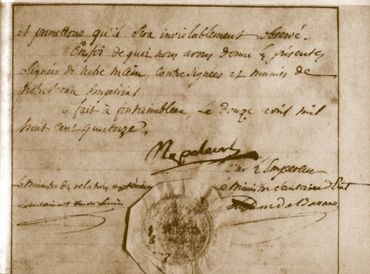 et promettons qu'il sera inviolablement observé.
En foi de quoi nous avons donné les présentes
signées de notre main contresignées et munies de
notre sceau impérial
fait à fontainebleau, le douze avril mil
huit cent quatorze.
Napoleon
Par l'Empereur
Le ministre des relations extérieures
Le ministre secrétaire d'Etat
Le Duc de Bassano